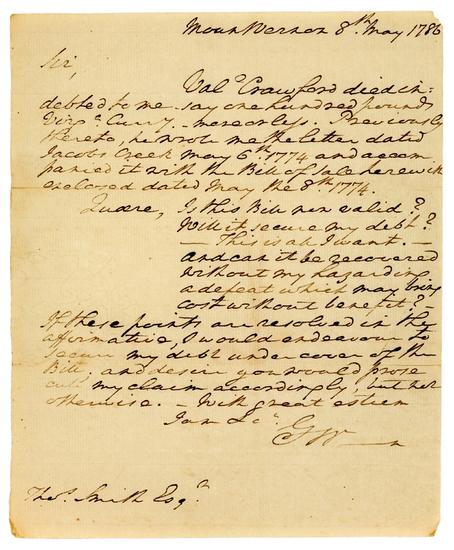 Mount Vernon 8th May 1786
Sir,
Val.e Crawford died in=
debted to me say one hundred pounds
Virg.a Curr.y more or less. Previously
thereto, he wrote me the letter dated
Jacobs Creek May 6th 1774 and accom
panied it with the Bill of Sale herewith
enclosed dated May the 8th 1774.
Quære, Is this Bill now valid?
Will it secure my debt?
— This is all I want. —
and can it be recovered
without my hazarding
a defeat which may bring
cost without benefit?
If these points are resolved in the
affirmative, I would endeavour to
secure my debt under cover of the
Bill, and desire you would prose
cute my claim accordingly, but not
otherwise. — With great esteem
I am &c.a
GW—n
Tho.s Smith Esq.r